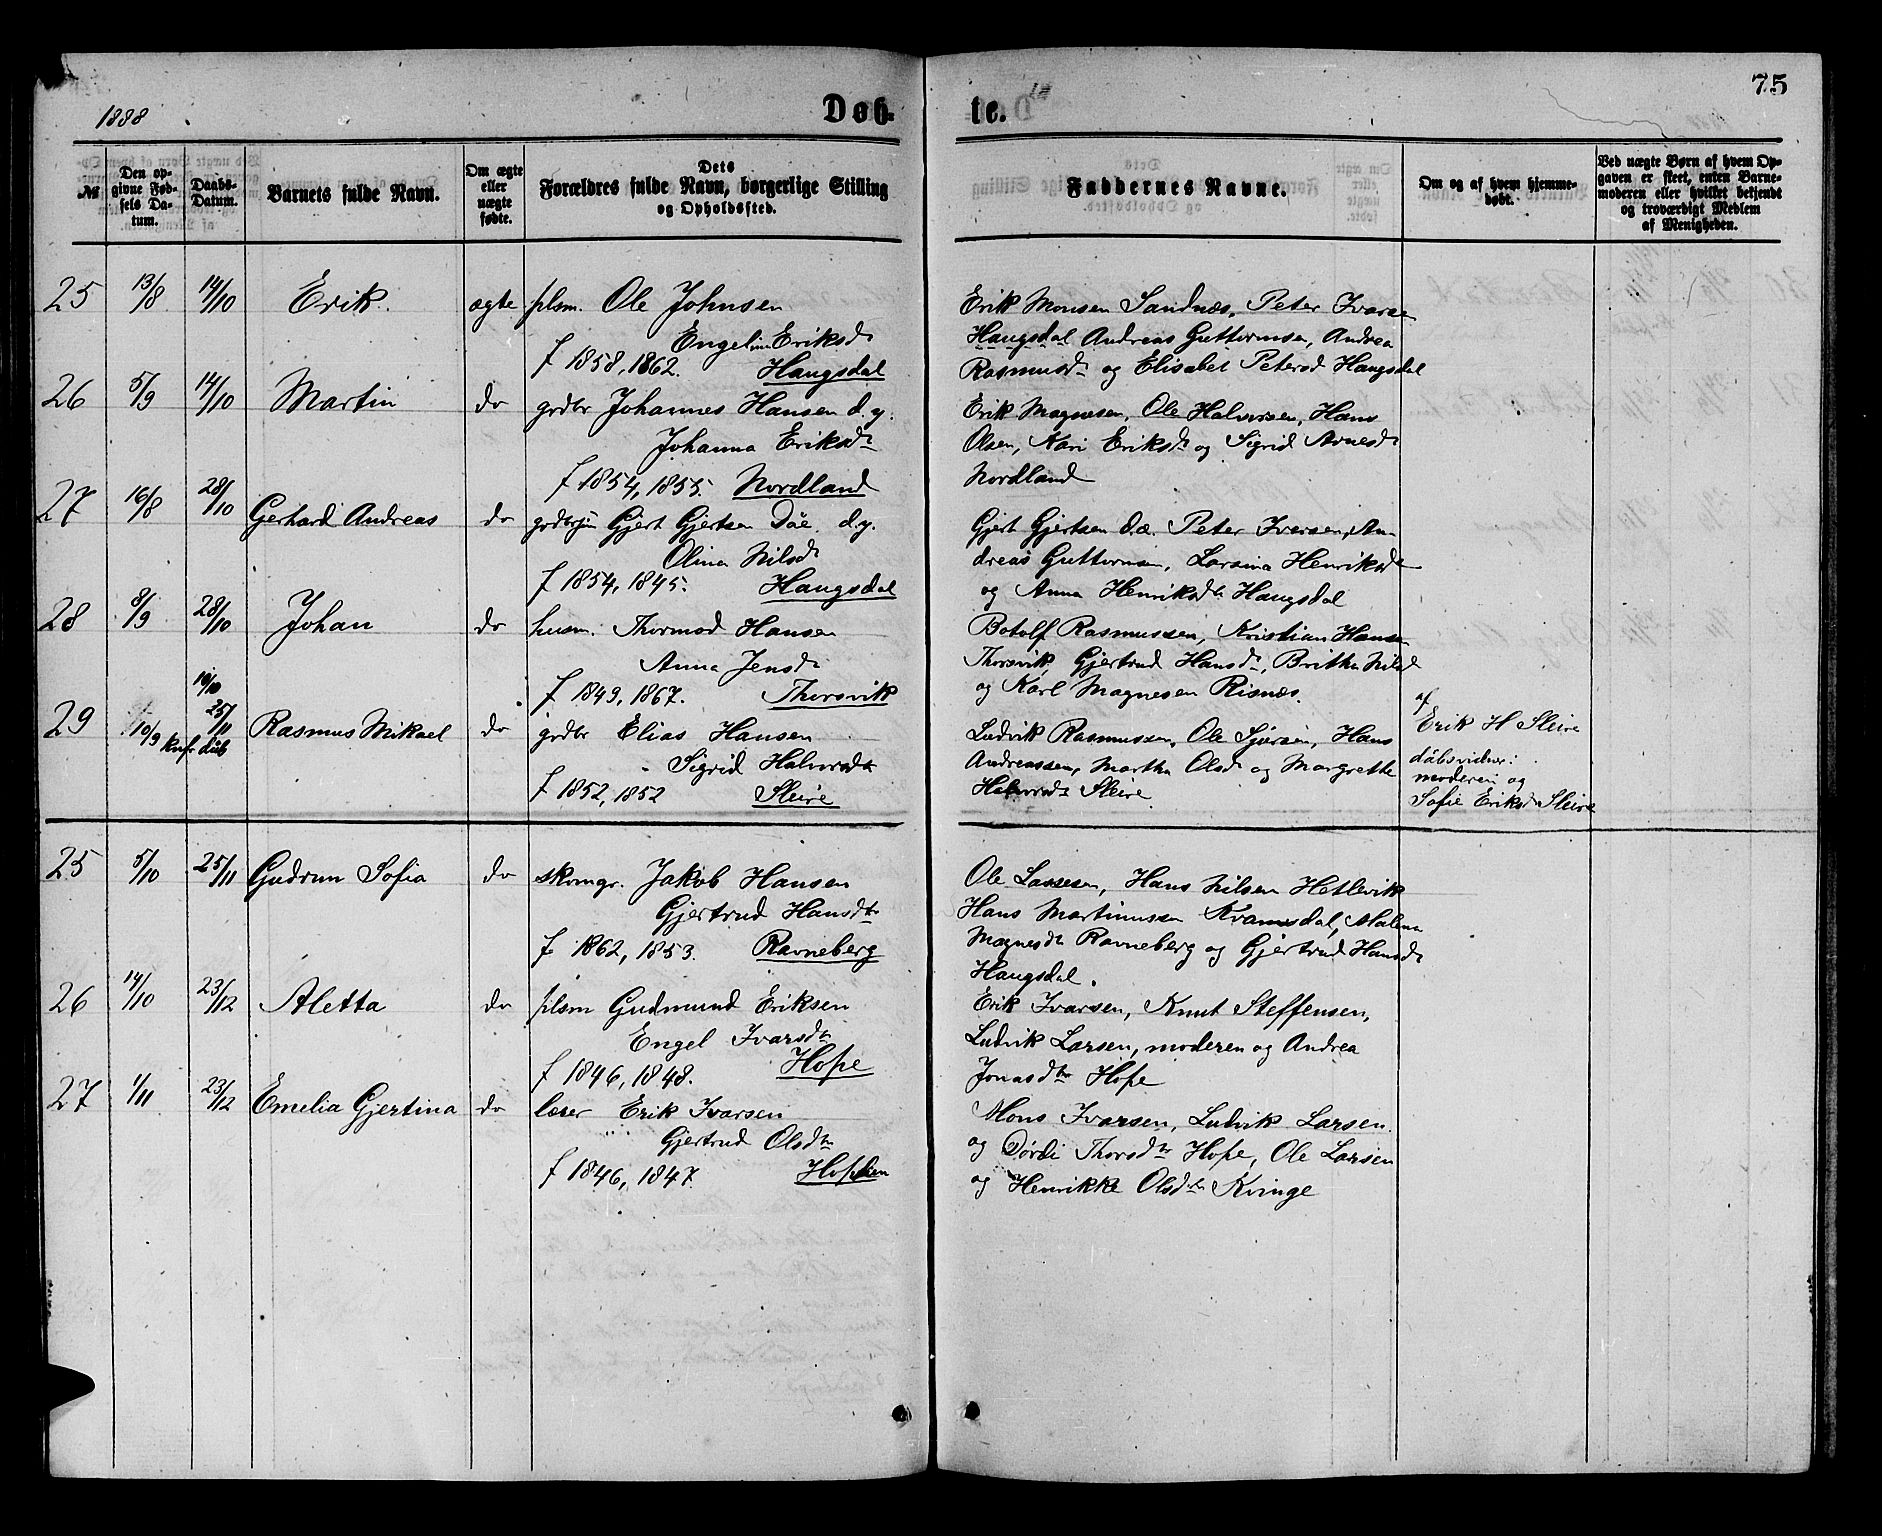 1888 Døb- te. 75
№ Den opgivne Fødsels Datum. Daabs-Datum. Barnets fulde Navn. Om ægte eller uægte fødte. Dets Forældres fulde Navn, borgerlige Stilling og Opholdssted. Faddernes Navne. Om og af hvem hjemmedøbt. Ved uægte Børn af hvem Opgaven er skeet, enten Barnemoderen eller hvilket bekjendt og troværdigt Medlem af Menigheden.
25 13/8 14/10 Erik. ægte plsm. Ole Johnsen
Engeline Eriksdr
f 1858, 1862. Haugsdal
Erik Monsen Sandnæs, Peter Ivarsen
Haugsdal Andreas Guttormsen, Andrea
Rasmusdr og Elisabet Petersd Haugsdal
26 5/9 14/10 Martin do grdbr Johannes Hansen d.y.
Johanna Eriksdr
f 1854, 1855. Nordland
Erik Magnesen, Ole Halvorsen, Hans
Olsen, Kari Eriksdr og Sigrid Arnesdr
Nordland
27 16/8 28/10 Gerhard Andreas do Gjert Gjertsen Døe. d.y.
Olina Nilsdr
f 1854, 1845. Haugsdal
Gjert Gjertsen d.æ. Peter Iversen, An-
dreas Guttormsen, Larsina Henriksdr
og Anna Henriksdr Haugsdal
28 8/9 28/10 Johan do husm. Thormod Hansen
Anna Jensdr
f 1849, 1867. Thorsvik
Botolf Rasmussen, Kristian Hansen
Thorsvik, Gjertrud Hansdr, Britha Nilsdr
og Karl Magnesen Risnæs.
29 10/9 19/10 25/11 Rasmus Mikael do grdbr Elias Hansen
Konf. dåb
Sigrid Halvorsdr
f 1852, 1852 Sleire
Ludvik Rasmussen, Ole Sjursen, Hans
Andreassen, Martha Olsdr og Margrethe
Halvorsdr Sleire.
af
Erik H Sleire
dåbsvidner:
moderen og
Sofie Eriksdr Sleire
25 5/10 25/11 Gudrun Sofia do skomgr. Jakob Hansen
Gjertrud Hansdtr
f 1862, 1853. Ravneberg
Ole Lassesen, Hans Nilsen Hetlevik
Hans Martinussen Kvamsdal, Malena
Magnesdr Ravneberg og Gjertrud Hansdr
Haugsdal.
26 14/10 23/12 Aletta do plsm Gudmund Eriksen
Engel Ivarsdtr
f 1846, 1848. Hope
Erik Ivarsen, Knut Steffensen,
Ludvik Larsen, moderen og Andrea
Jonasdtr Hope
27 1/11 23/12 Emelia Gjertina do lærer Erik Ivarsen
Gjertrud Olsdtr
f 1846, 1847.
Mons Ivarsen, Ludvik Larsen.
og Dørdi Thorsdtr Hope, Ole Larsen
og Henrikke Olsdtr Kvinge